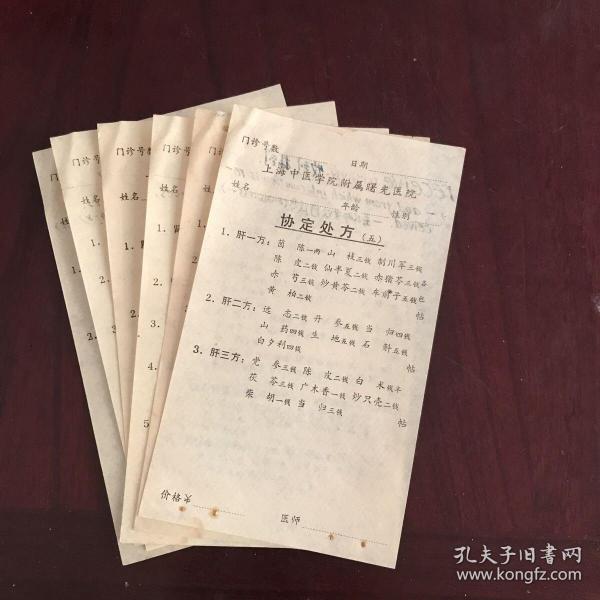 门诊号数
日期
上海中医学院附属曙光医院
姓名 年龄 性别
协定处方（五）
1. 肝一方：茵 陈一两 山 栀三钱 制川军三钱
陈 皮二钱 仙半夏二钱 赤猪苓三钱各
赤 芍三钱 炒黄芩二钱 车前子五钱包
黄 柏二钱 帖
2. 肝二方：远 志二钱 丹 参五钱 当 归四钱
山 药四钱 生 地五钱 石 斛五钱
白夕利四钱 帖
3. 肝三方：党 参三钱 陈 皮二钱 白 术钱半
茯 苓三钱 广木香一钱 炒只壳二钱
柴 胡一钱 当 归三钱 帖
价格￥
医师
门诊号数
姓名
门诊号
姓名
门诊号数
姓名
孔夫子旧书网
www.kongfz.com